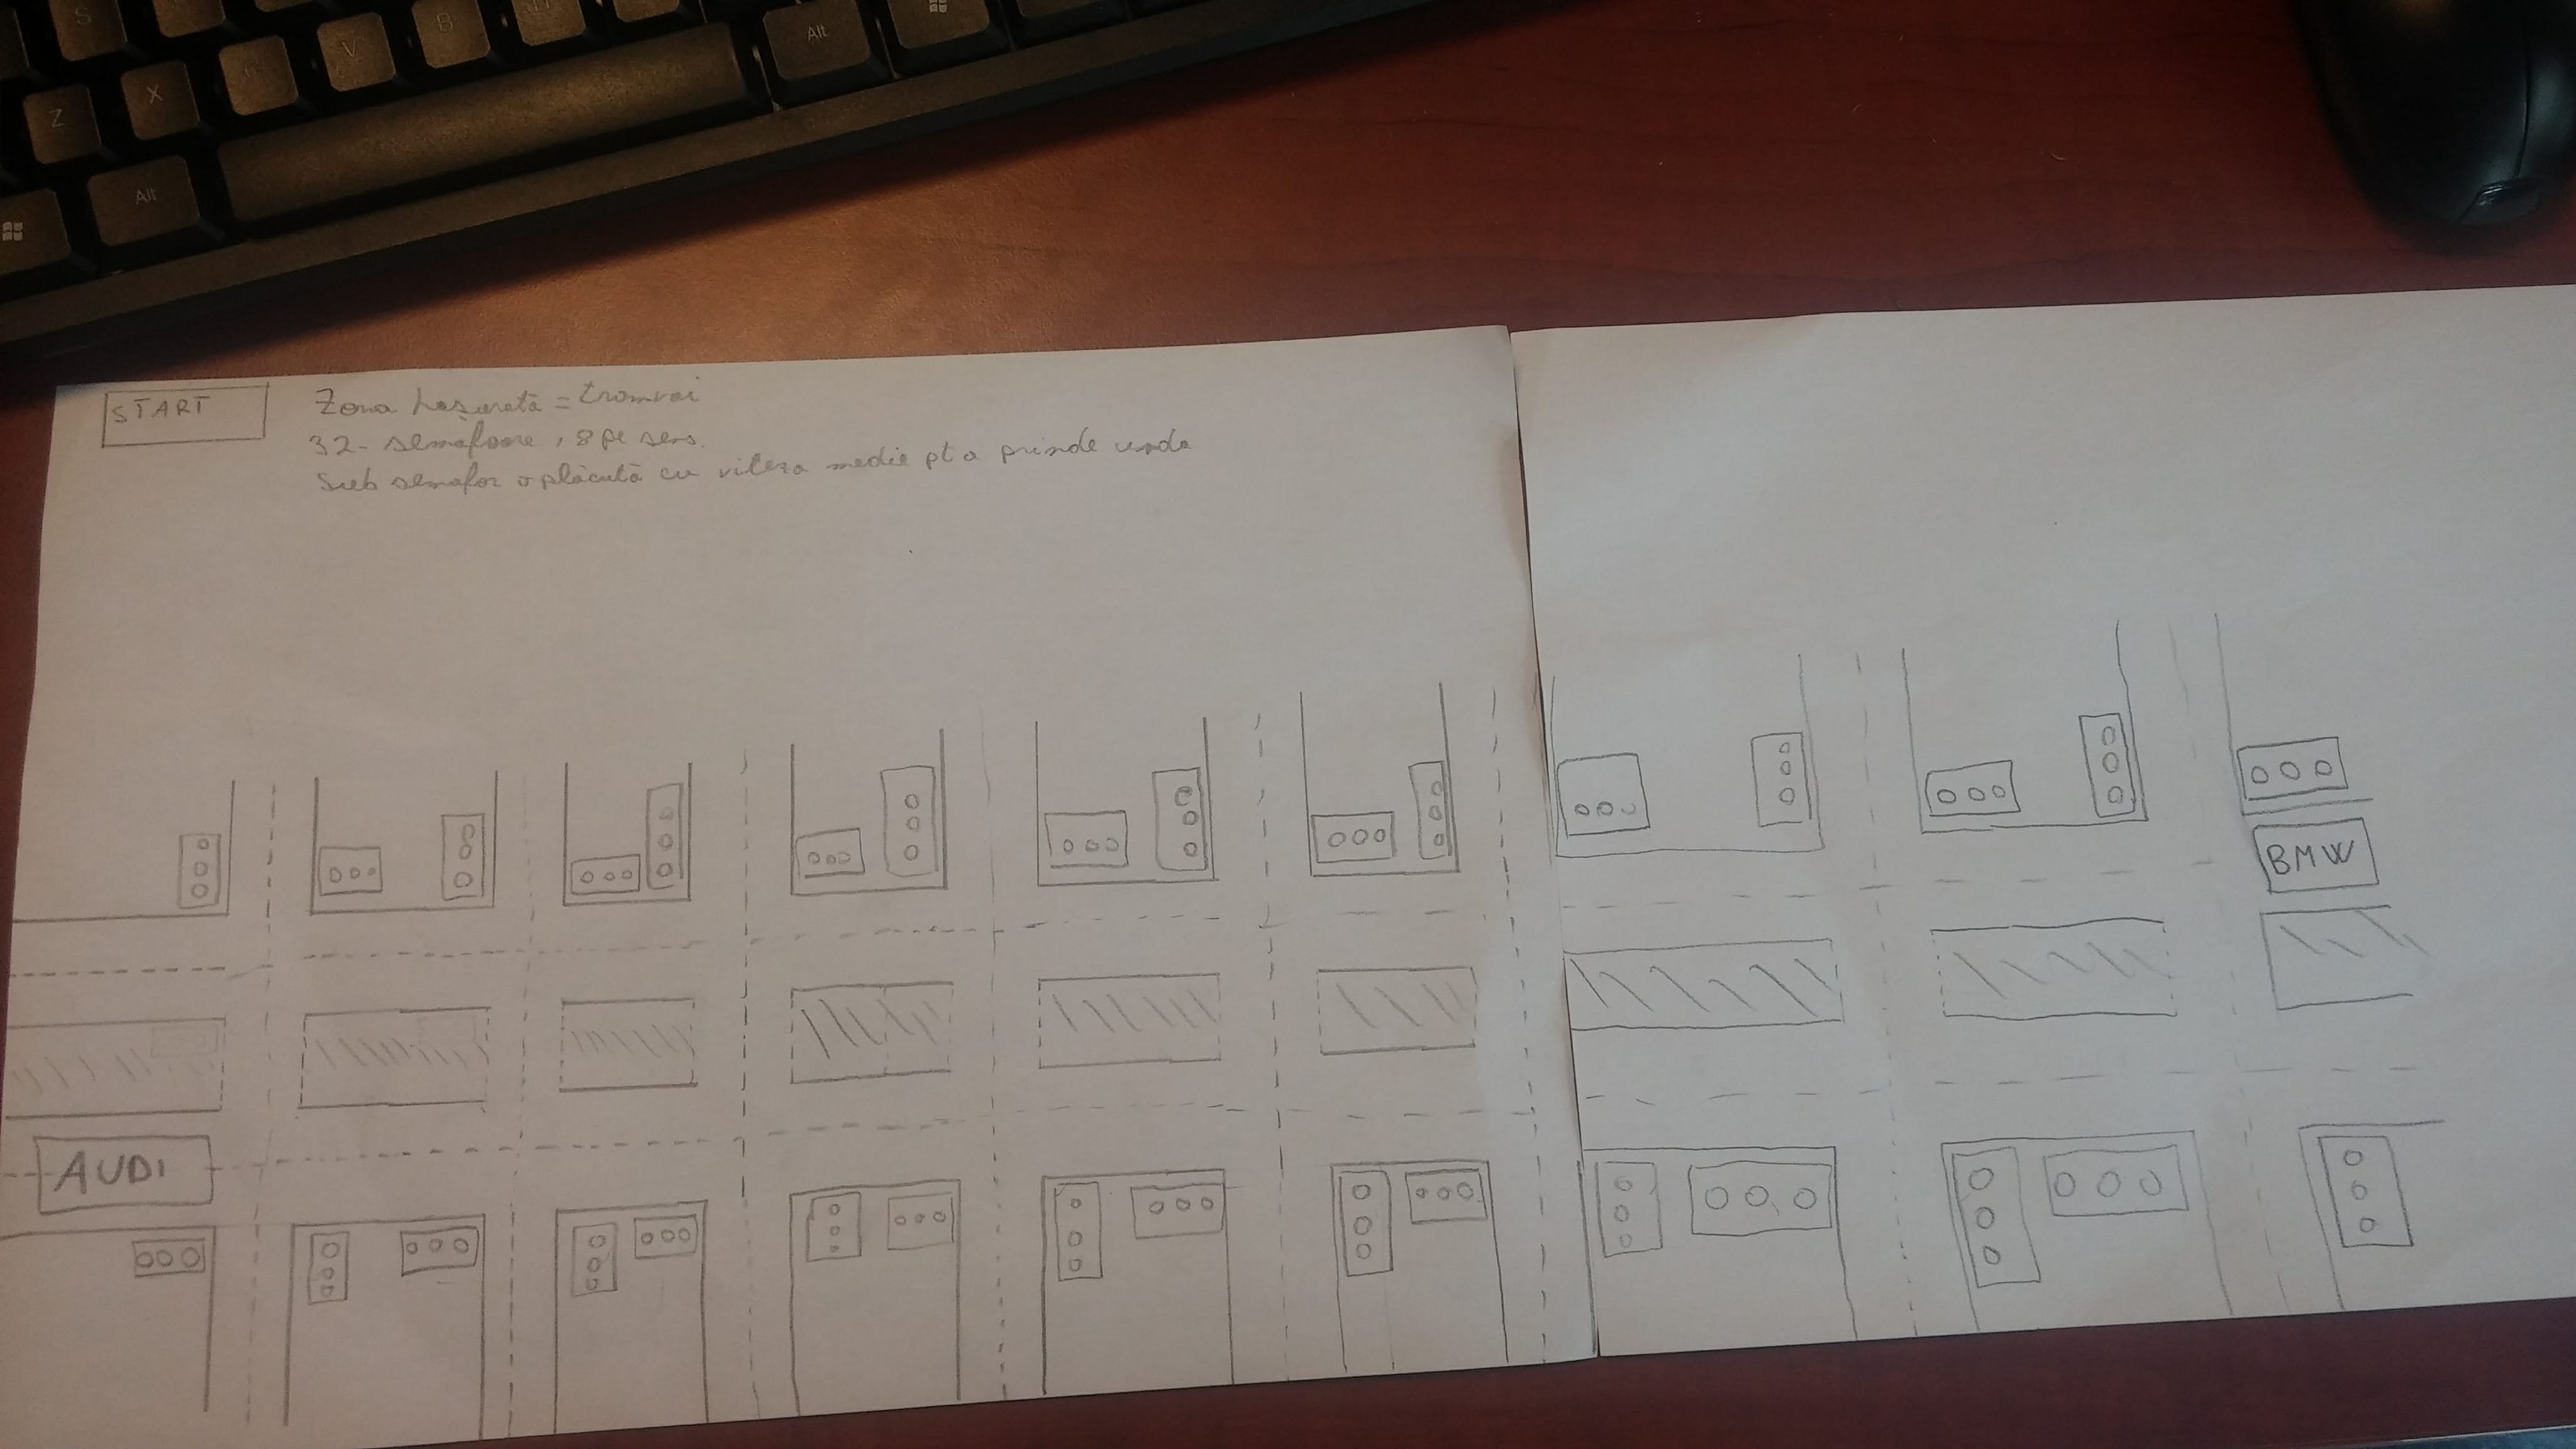 S
Z
X
C
V
B
N
Alt
Alt
START
Zona hașurată = tramvai
32 - semafoare, 8 pe sens.
Sub semafor o plăcuță cu viteza medie pt a prinde unda
BMW
AUDI